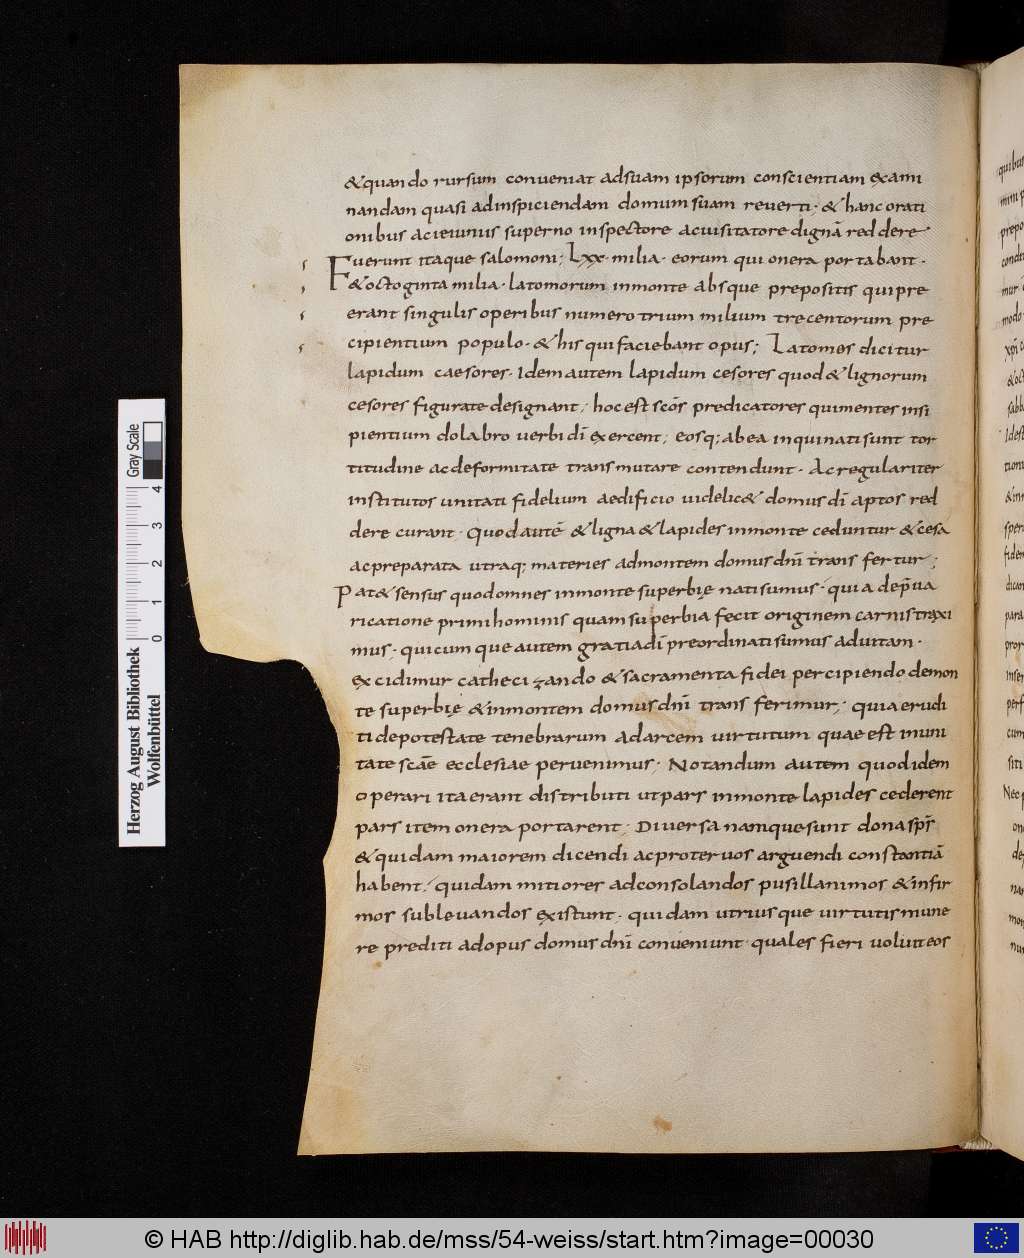 &quando rursum conueniat adsuam ipsorum conscientiam exami
nandam quasi adinspiciendam domum suam reuerti · & hanc orati
onibus acieiunus superno inspectore acuisitatore dignā reddere
Fuerunt itaque salomoni; Lxx · milia · eorum qui onera portabant ·
&octoginta milia · latomorum inmonte absque prepositis quipre
erant singulis operibus numero trium milium trecentorum pre
cipientium populo · & his qui faciebant opus; Latomos dicitur
lapidum caesores · Idem autem lapidum cesores quod & lignorum
cesores figurate designant; hoc est scōs predicatores quimentes insi
pientium dolabro uerbi dī exercent; eosq; ab ea inquinati sunt tor
titudine acdeformitate transmutare contendunt · Ac regulariter
institutos unitati fidelium aedificio uidelic& domus dī aptos red
dere curant · Quod autē & ligna & lapides inmonte ceduntur & cesa
acpreparata utraq; materies admontem domus dn̄i trans fertur;
Pat& sensus quodomnes inmonte superbię nati sumus · quia dep̄ua
ricatione primi hominis quam superbia fecit originem carnis traxi
mus · quicum que autem gratia dī preordinati sumus aduitam ·
excidimur cathecizando & sacramenta fidei percipiendo demon
te superbię & inmontem domus dn̄i trans ferimur; quia erudi
ti depotestate tenebrarum adarcem uirtutum quae est inuni
tate scāe ecclesiae peruenimus; Notandum autem quod idem
operari ita erant distributi utpars inmonte lapides cederent
pars item onera portarent; Diuersa namque sunt dona sp̄s
& quidam maiorem dicendi acproteruos arguendi constantiā
habent; quidam mitiores adconsolandos pusillanimos & infir
mos subleuandos existunt · quidam utrius que uirtutis mune
re prediti adopus domus dn̄i conueniunt · quales fieri uoluit eos
Herzog August Bibliothek
Wolfenbüttel
0 1 2 3 4
Gray Scale
© HAB http://diglib.hab.de/mss/54-weiss/start.htm?image=00030